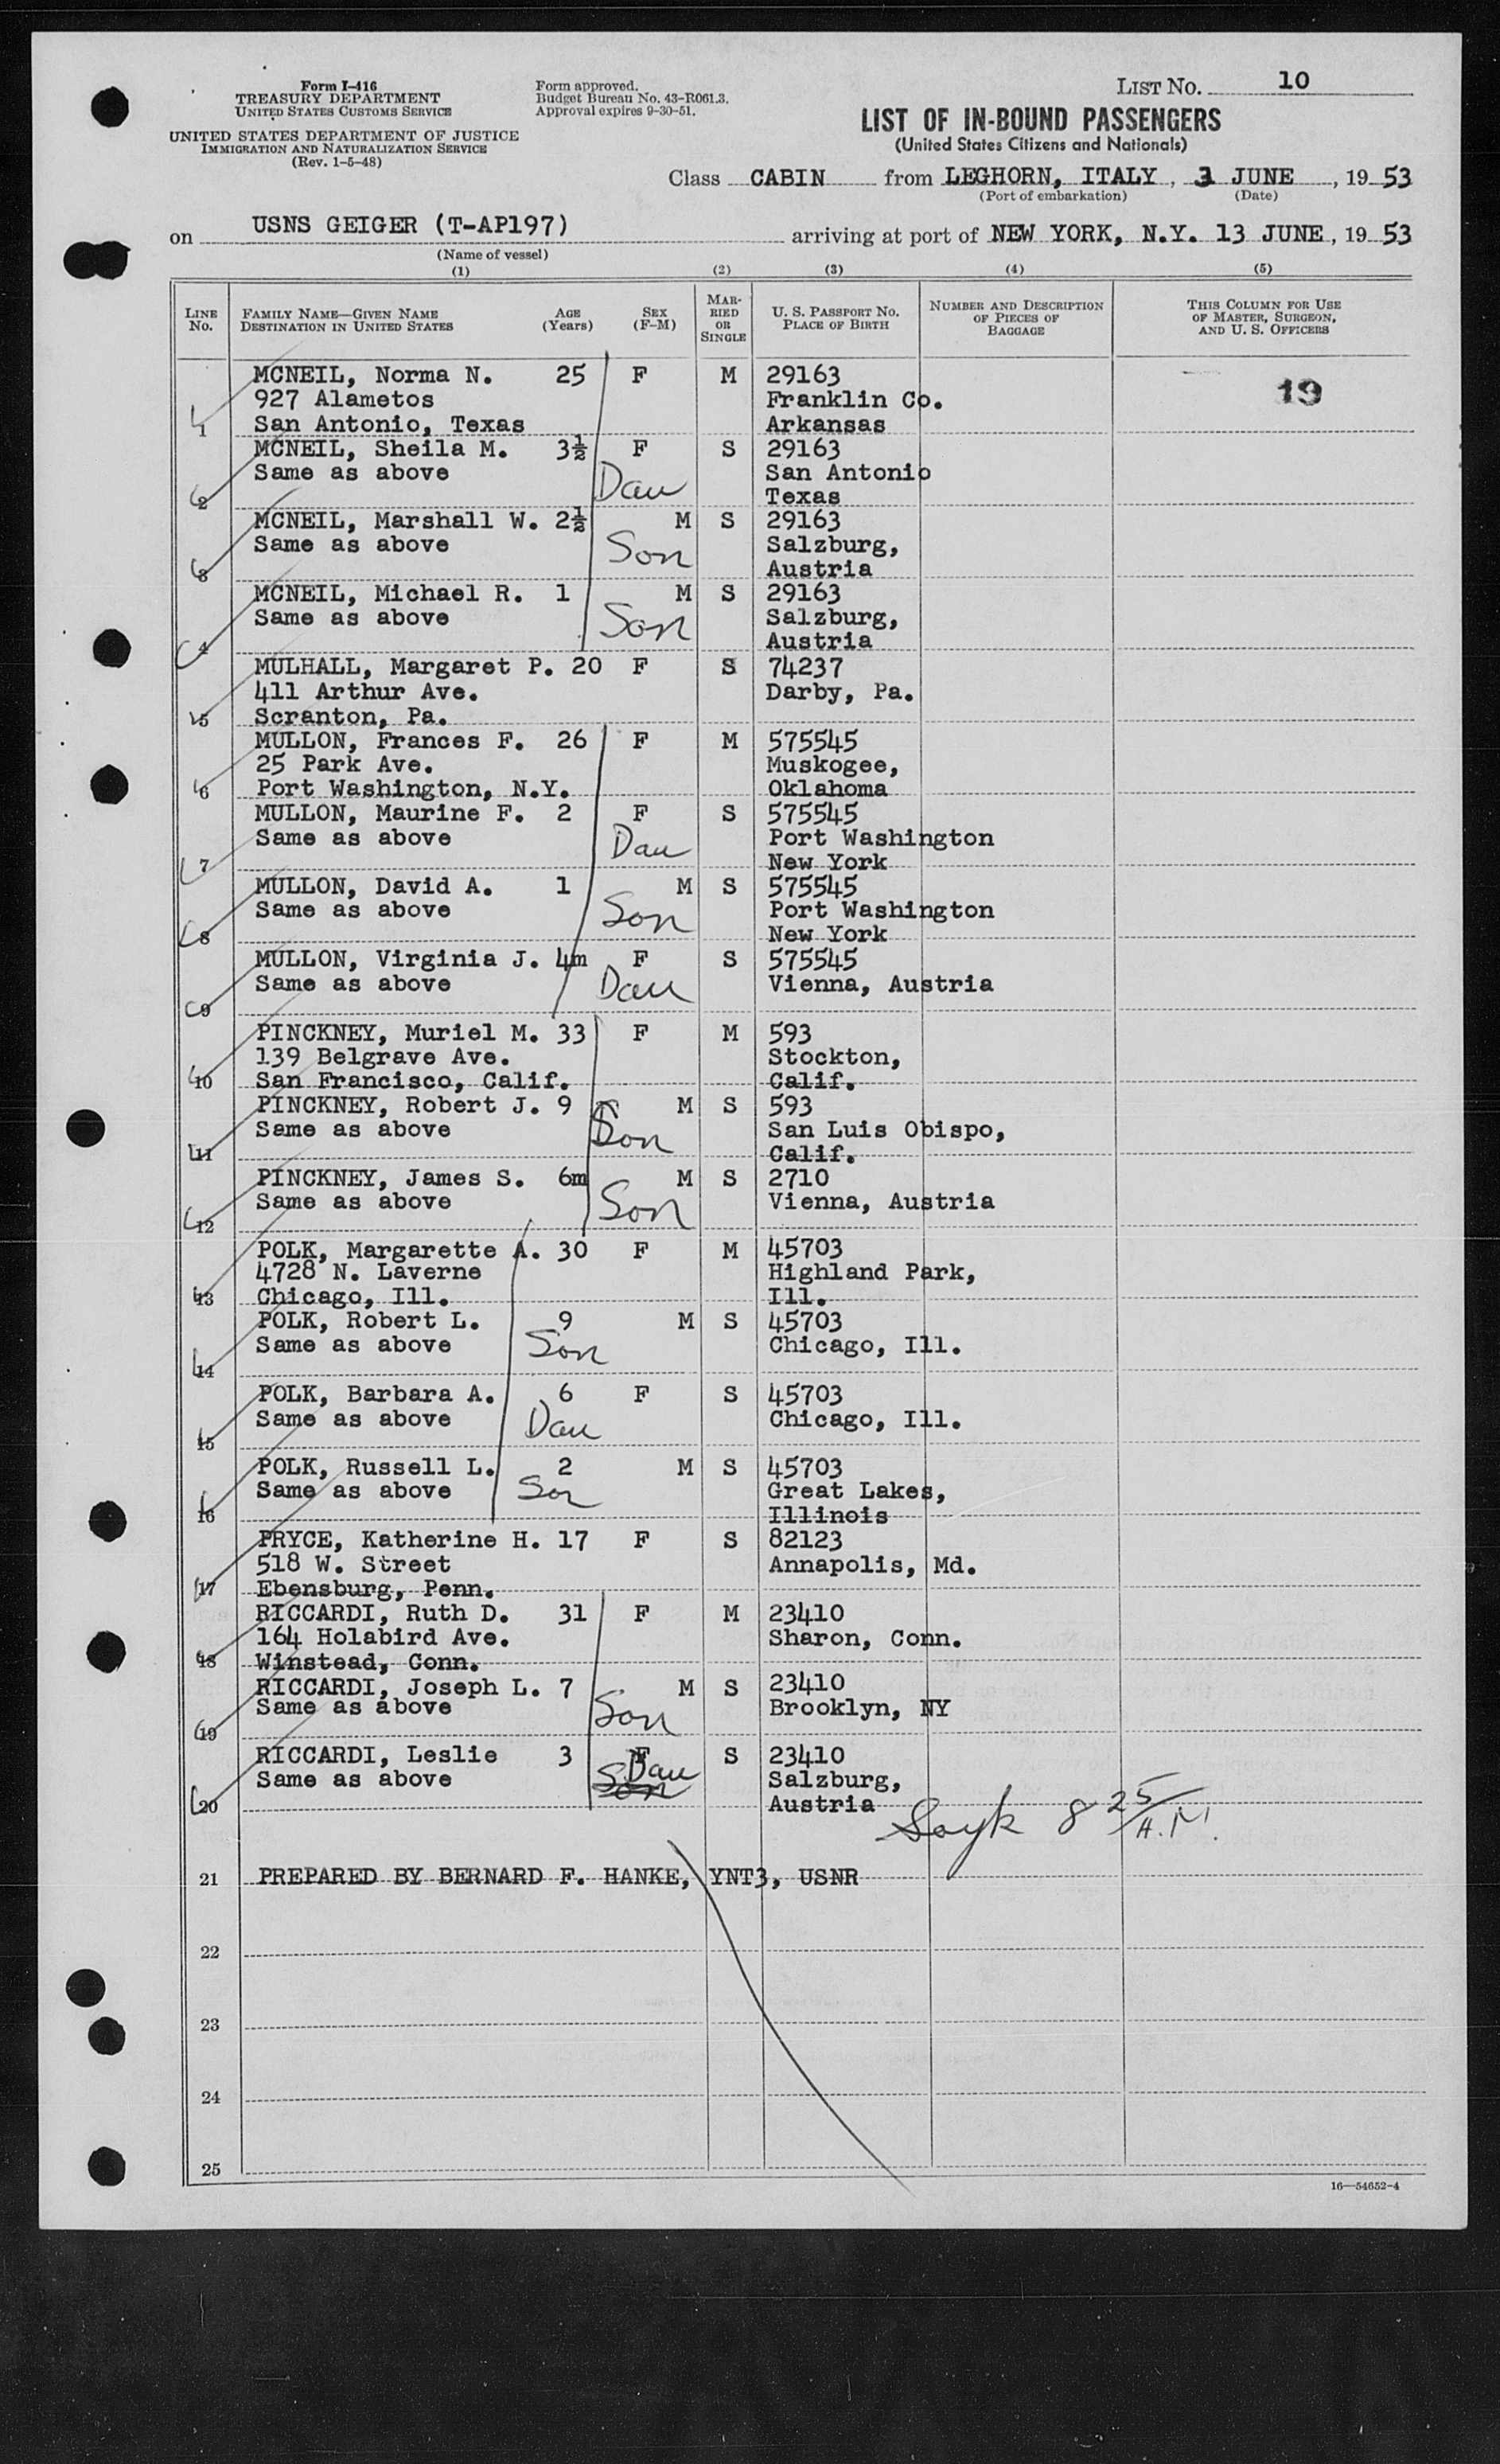 Form I-416
TREASURY DEPARTMENT
UNITED STATES CUSTOMS SERVICE
UNITED STATES DEPARTMENT OF JUSTICE
IMMIGRATION AND NATURALIZATION SERVICE
(Rev. 1-5-48)
Form approved.
Budget Bureau No. 43-R061.3.
Approval expires 9-30-51.
LIST NO. 10
LIST OF IN-BOUND PASSENGERS
(United States Citizens and Nationals)
Class CABIN from LEGHORN, ITALY, 3 JUNE, 1953
(Port of embarkation) (Date)
on USNS GEIGER (T-AP197) arriving at port of NEW YORK, N.Y. 13 JUNE, 1953
(Name of vessel)
(1) (2) (3) (4) (5)
LINE No. FAMILY NAME—GIVEN NAME DESTINATION IN UNITED STATES AGE (Years) SEX (F-M) MARRIED OR SINGLE U. S. PASSPORT NO. PLACE OF BIRTH NUMBER AND DESCRIPTION OF PIECES OF BAGGAGE THIS COLUMN FOR USE OF MASTER, SURGEON, AND U. S. OFFICERS
MCNEIL, Norma N. 25 F M 29163
927 Alametos Franklin Co. 19
1 San Antonio, Texas Arkansas
MCNEIL, Sheila M. 3½ F S 29163
Same as above Dau San Antonio
2 Texas
MCNEIL, Marshall W. 2½ M S 29163
Same as above Son Salzburg,
3 Austria
MCNEIL, Michael R. 1 M S 29163
Same as above Son Salzburg,
4 Austria
MULHALL, Margaret P. 20 F S 74237
411 Arthur Ave. Darby, Pa.
5 Scranton, Pa.
MULLON, Frances F. 26 F M 575545
25 Park Ave. Muskogee,
6 Port Washington, N.Y. Oklahoma
MULLON, Maurine F. 2 F S 575545
Same as above Dau Port Washington
7 New York
MULLON, David A. 1 M S 575545
Same as above Son Port Washington
8 New York
MULLON, Virginia J. 4m F S 575545
Same as above Dau Vienna, Austria
9
PINCKNEY, Muriel M. 33 F M 593
139 Belgrave Ave. Stockton,
10 San Francisco, Calif. Calif.
PINCKNEY, Robert J. 9 M S 593
Same as above Son San Luis Obispo,
11 Calif.
PINCKNEY, James S. 6m M S 2710
Same as above Son Vienna, Austria
12
POLK, Margarette A. 30 F M 45703
4728 N. Laverne Highland Park,
13 Chicago, Ill. Ill.
POLK, Robert L. 9 M S 45703
Same as above Son Chicago, Ill.
14
POLK, Barbara A. 6 F S 45703
Same as above Dau Chicago, Ill.
15
POLK, Russell L. 2 M S 45703
Same as above Son Great Lakes,
16 Illinois
PRYCE, Katherine H. 17 F S 82123
518 W. Street Annapolis, Md.
17 Ebensburg, Penn.
RICCARDI, Ruth D. 31 F M 23410
164 Holabird Ave. Sharon, Conn.
18 Winstead, Conn.
RICCARDI, Joseph L. 7 M S 23410
Same as above Son Brooklyn, NY
19
RICCARDI, Leslie 3 F S 23410
Same as above Son Dau Salzburg,
20 Austria
8 25/
21 PREPARED BY BERNARD F. HANKE, YNT3, USNR
22
23
24
25
16—54652-4